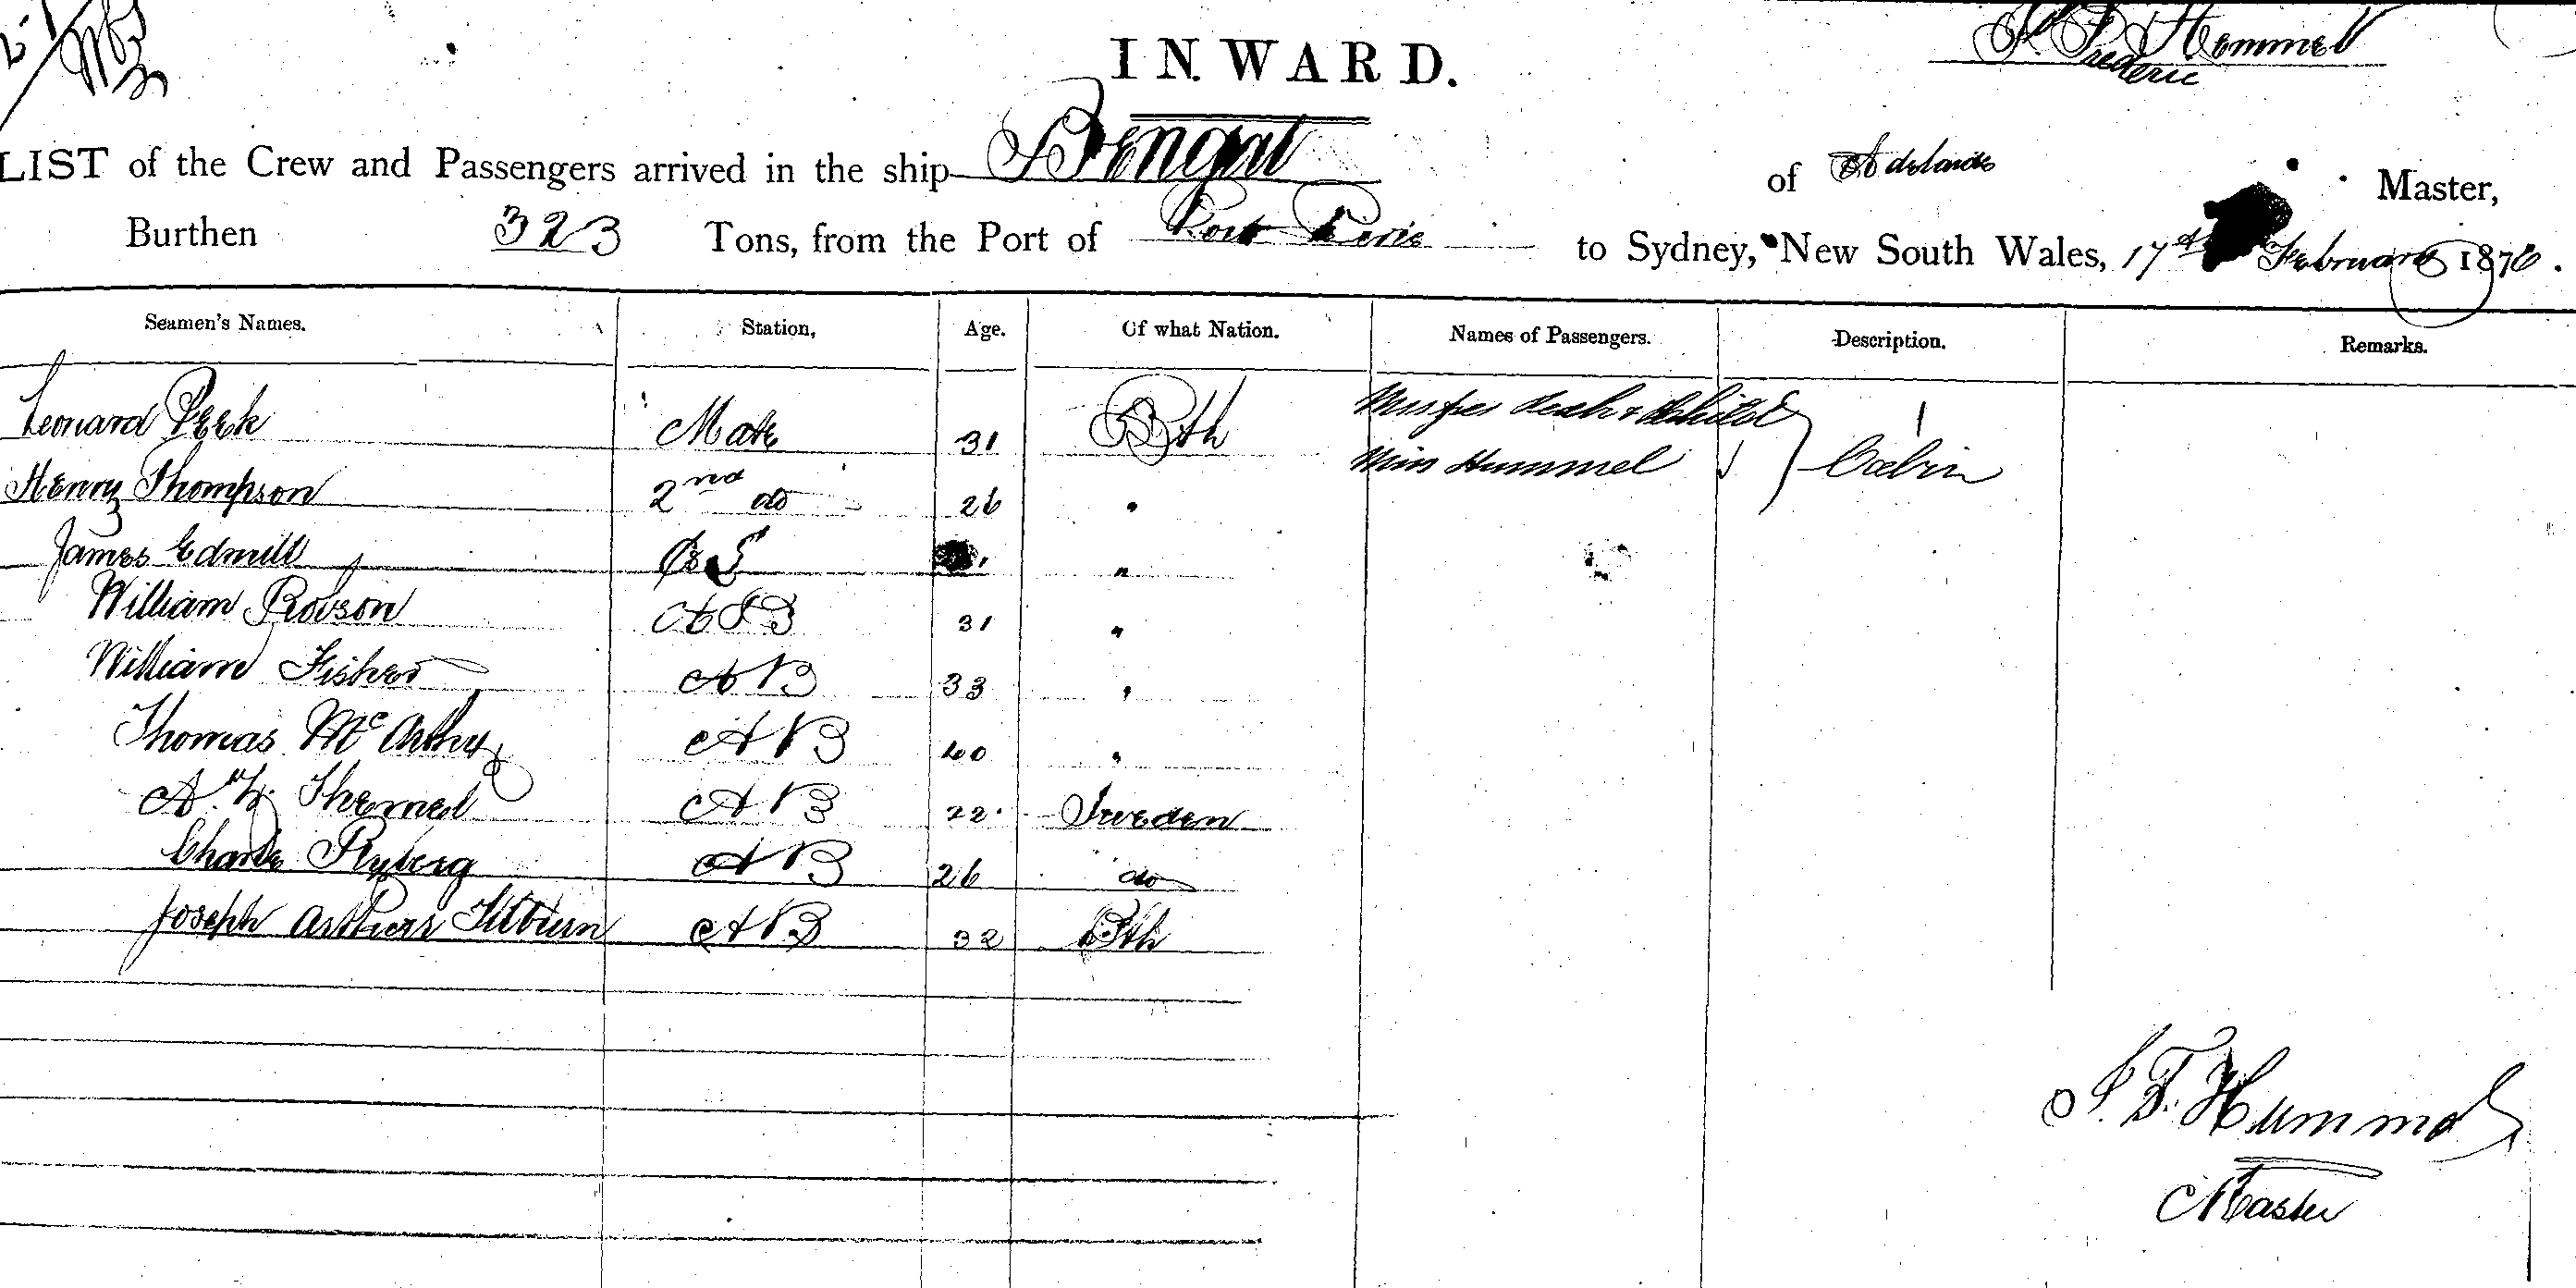 INWARD.
Frederic Hummel
LIST of the Crew and Passengers arrived in the ship Bengal of Adelaide Master,
Burthen 323 Tons, from the Port of Port Pirie to Sydney, New South Wales, 17th February 1876.
Seamen's Names. Station, Age. Of what Nation. Names of Passengers. Description. Remarks.
Leonard Peek Mate 31 Bth
Miss Hummel Cabin
Henry Thompson 2nd do 26 "
James C&S "
William Robson AB 31 "
William Fisher AB 33 "
Thomas McArthy AB 40 "
A. AB 22 Sweden
Charles Ryberg AB 26 do
Joseph Arthurs Tilburn AB 32 Bth
F. Hummel
Master